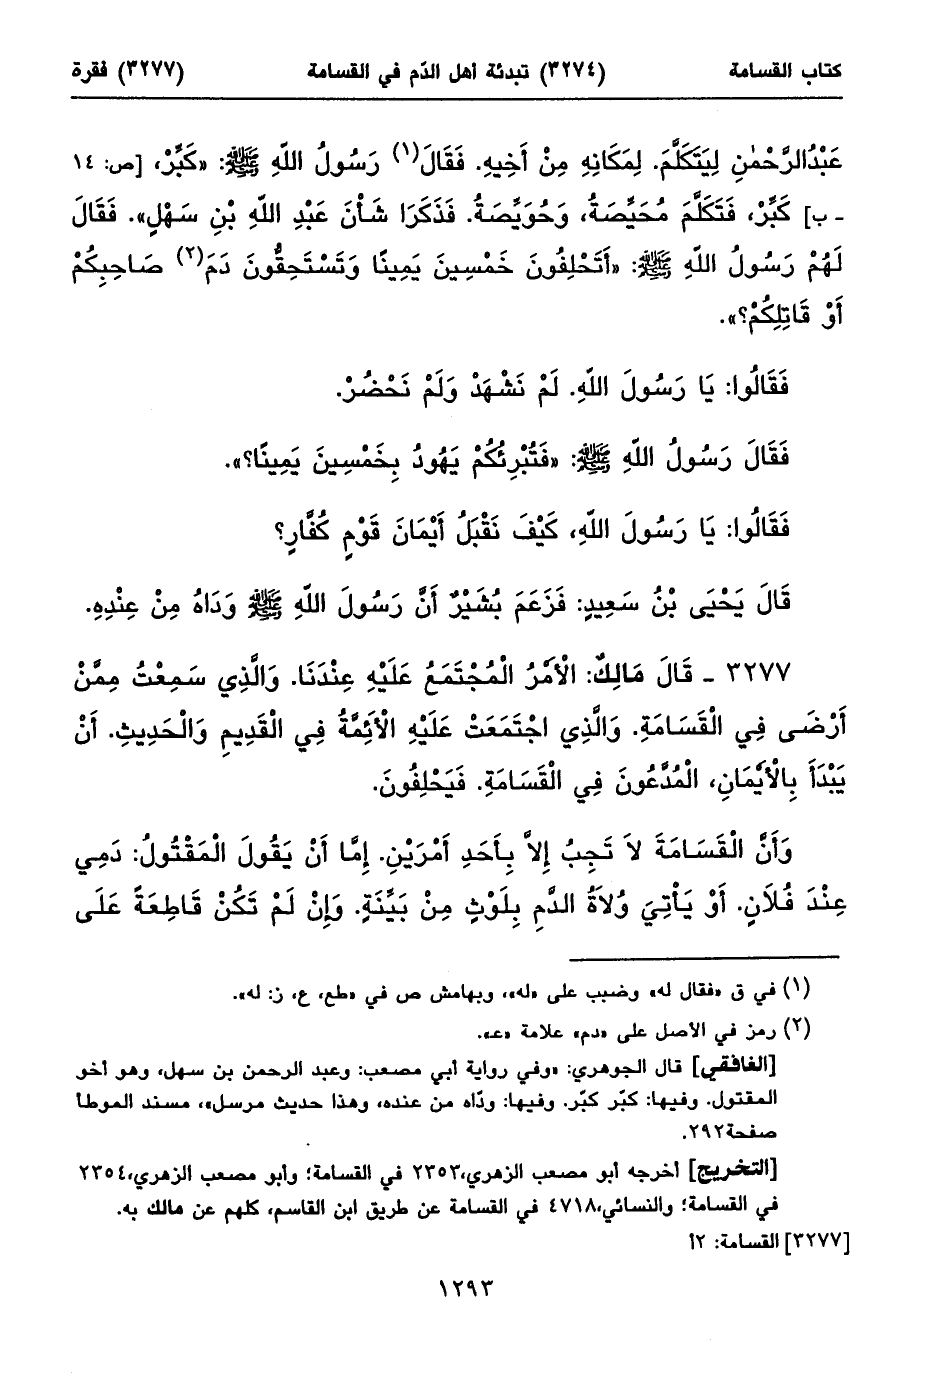 كتاب القسامة (٣٢٧٤) تبدئة أهل الدّم في القسامة (٣٢٧٧) فقرة
عَبْدُالرَّحْمٰنِ لِيَتَكَلَّمَ. لِمَكَانِهِ مِنْ أَخِيهِ. فَقَالَ(١) رَسُولُ اللّهِ ﷺ: «كَبِّرْ، [ص: ١٤
- ب] كَبِّرْ، فَتَكَلَّمَ مُحَيِّصَةُ، وَحُوَيِّصَةُ. فَذَكَرَا شَأْنَ عَبْدِ اللّهِ بْنِ سَهْلٍ». فَقَالَ
لَهُمْ رَسُولُ اللّهِ ﷺ: «أَتَحْلِفُونَ خَمْسِينَ يَمِينًا وَتَسْتَحِقُّونَ دَمَ(٢) صَاحِبِكُمْ
أَوْ قَاتِلِكُمْ؟».
فَقَالُوا: يَا رَسُولَ اللّهِ. لَمْ نَشْهَدْ وَلَمْ نَحْضُرْ.
فَقَالَ رَسُولُ اللّهِ ﷺ: «فَتُبْرِئُكُمْ يَهُودُ بِخَمْسِينَ يَمِينًا؟».
فَقَالُوا: يَا رَسُولَ اللّهِ، كَيْفَ نَقْبَلُ أَيْمَانَ قَوْمٍ كُفَّارٍ؟
قَالَ يَحْيَى بْنُ سَعِيدٍ: فَزَعَمَ بُشَيْرٌ أَنَّ رَسُولَ اللّهِ ﷺ وَدَاهُ مِنْ عِنْدِهِ.
٣٢٧٧ - قَالَ مَالِكٌ: الْأَمْرُ الْمُجْتَمَعُ عَلَيْهِ عِنْدَنَا. وَالَّذِي سَمِعْتُ مِمَّنْ
أَرْضَى فِي الْقَسَامَةِ. وَالَّذِي اجْتَمَعَتْ عَلَيْهِ الْأَئِمَّةُ فِي الْقَدِيمِ وَالْحَدِيثِ. أَنْ
يَبْدَأَ بِالْأَيْمَانِ، الْمُدَّعُونَ فِي الْقَسَامَةِ. فَيَحْلِفُونَ.
وَأَنَّ الْقَسَامَةَ لاَ تَجِبُ إِلاَّ بِأَحَدِ أَمْرَيْنِ. إِمَّا أَنْ يَقُولَ الْمَقْتُولُ: دَمِي
عِنْدَ فُلَانٍ. أَوْ يَأْتِيَ وُلاَةُ الدَّمِ بِلَوْثٍ مِنْ بَيِّنَةٍ. وَإِنْ لَمْ تَكُنْ قَاطِعَةً عَلَى
(١) في ق «فقال له» وضبب على «له»، وبهامش ص في «طع، ع، ز: له».
(٢) رمز في الأصل على «دم» علامة «عـ».
[الغافقي] قال الجوهري: «وفي رواية أبي مصعب: وعبد الرحمن بن سهل، وهو أخو
المقتول. وفيها: كبّر كبّر. وفيها: ودّاه من عنده، وهذا حديث مرسل»، مسند الموطأ
صفحة٢٩٢.
[التخريج] أخرجه أبو مصعب الزهري،٢٣٥٣ في القسامة؛ وأبو مصعب الزهري،٢٣٥٤
في القسامة؛ والنسائي،٤٧١٨ في القسامة عن طريق ابن القاسم، كلهم عن مالك به.
[٣٢٧٧] القسامة: ٢أ
١٢٩٣